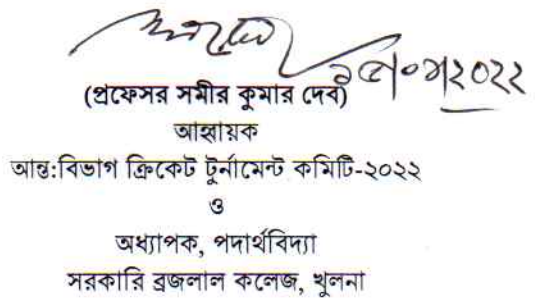 (প্রফেসর সমীর কুমার দেব)
আহ্বায়ক
আন্ত:বিভাগ ক্রিকেট টুর্নামেন্ট কমিটি-২০২২
ও
অধ্যাপক, পদার্থবিদ্যা
সরকারি ব্রজলাল কলেজ, খুলনা